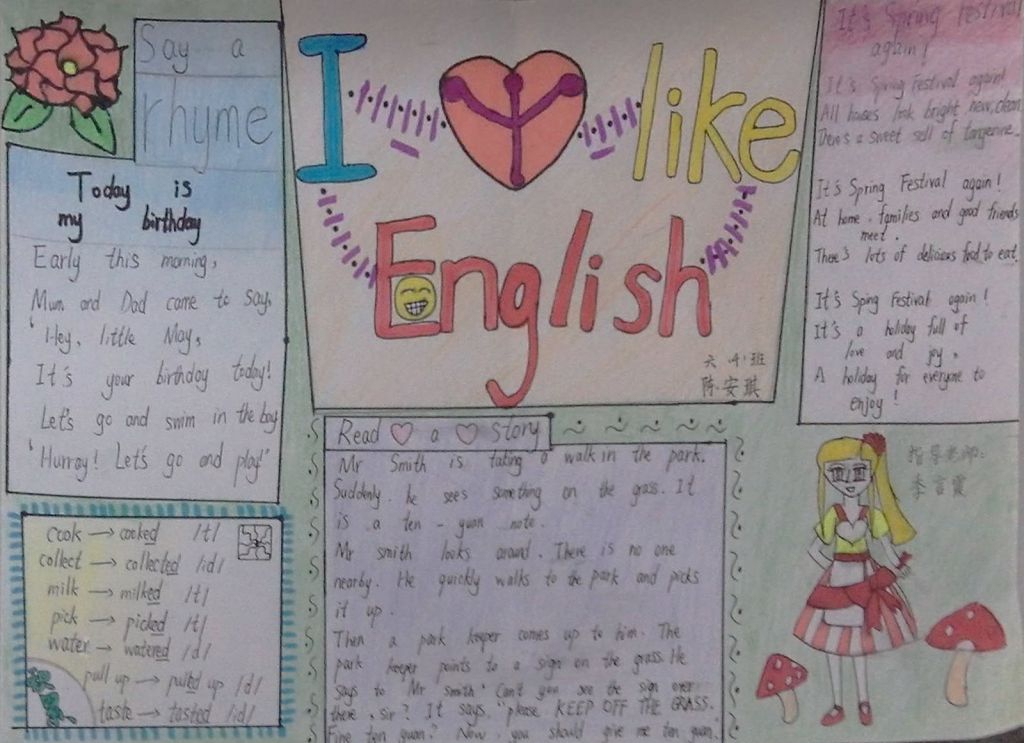 Say a
rhyme
Today is
my birthday
Early this morning,
Mum and Dad came to say,
'Hey, little May,
It's your birthday today!
Let's go and swim in the bay
'Hurray! Let's go and play!'
cook → cooked /t/
collect → collected /id/
milk → milked /t/
pick → picked /t/
water → watered /d/
pull up → pulled up /d/
taste → tasted /id/
I like
English
六.4.班
陈.安琪
Read a story
Mr Smith is taking a walk in the park.
Suddenly. he sees something on the grass. It
is a ten - yuan note.
Mr smith looks around. There is no one
nearby. He quickly walks to the park and picks
it up.
Then a park keeper comes up to him. The
park keeper points to a sign on the grass. He
says to Mr smith' Can't you see the sign over
there, sir? It says, "please KEEP OFF THE GRASS.
Fine ten yuan.' Now, you should give me ten yuan.
It's Spring Festival
again!
It's Spring Festival again!
All houses look bright, new, clean
There's a sweet sell of tangerine.
It's Spring Festival again!
At home, families and good friends
meet.
There's lots of delicious food to eat.
It's Sping Festival again!
It's a holiday full of
love and joy,
A holiday for everyone to
enjoy!
指导老师:
李言霞